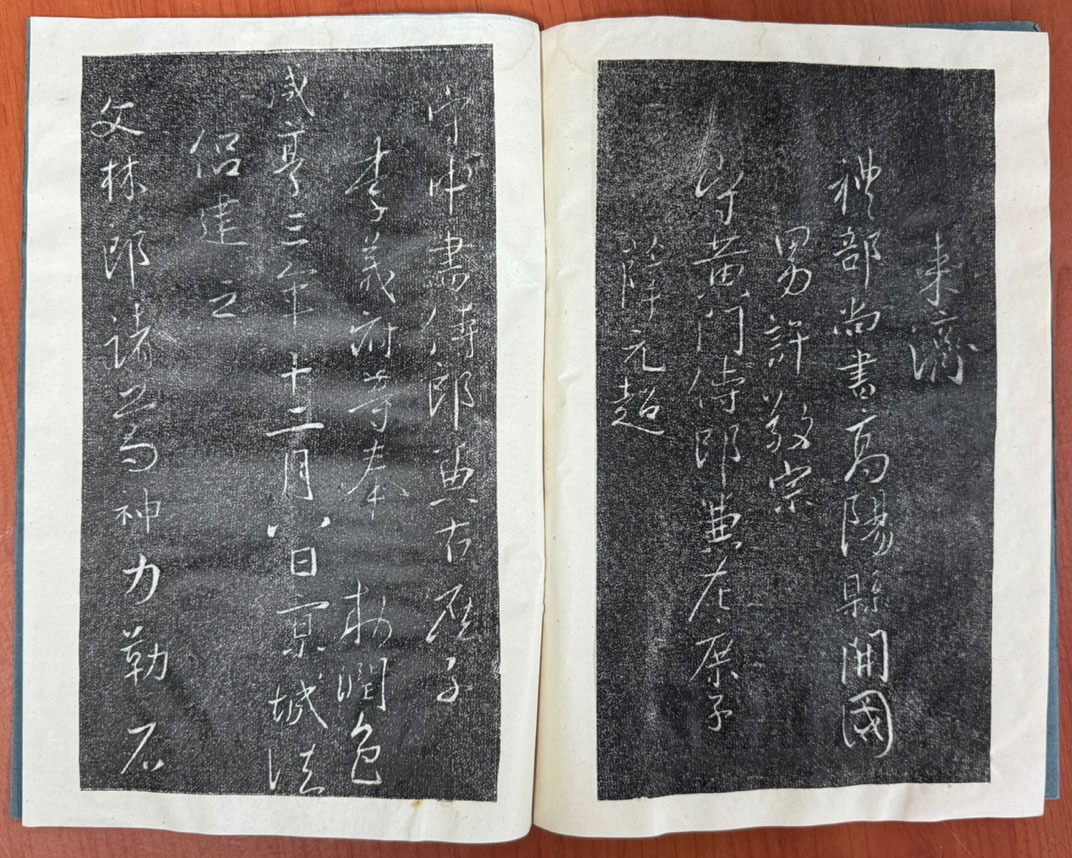 来濟
禮部尚書高陽縣開國
男許敬宗
守黃門侍郎兼左庶子
薛元超
守中書侍郎兼右庶子
李義府等奉 勑潤色
咸亨三年十二月八日京城法
侶建立
文林郎諸葛神力勒石